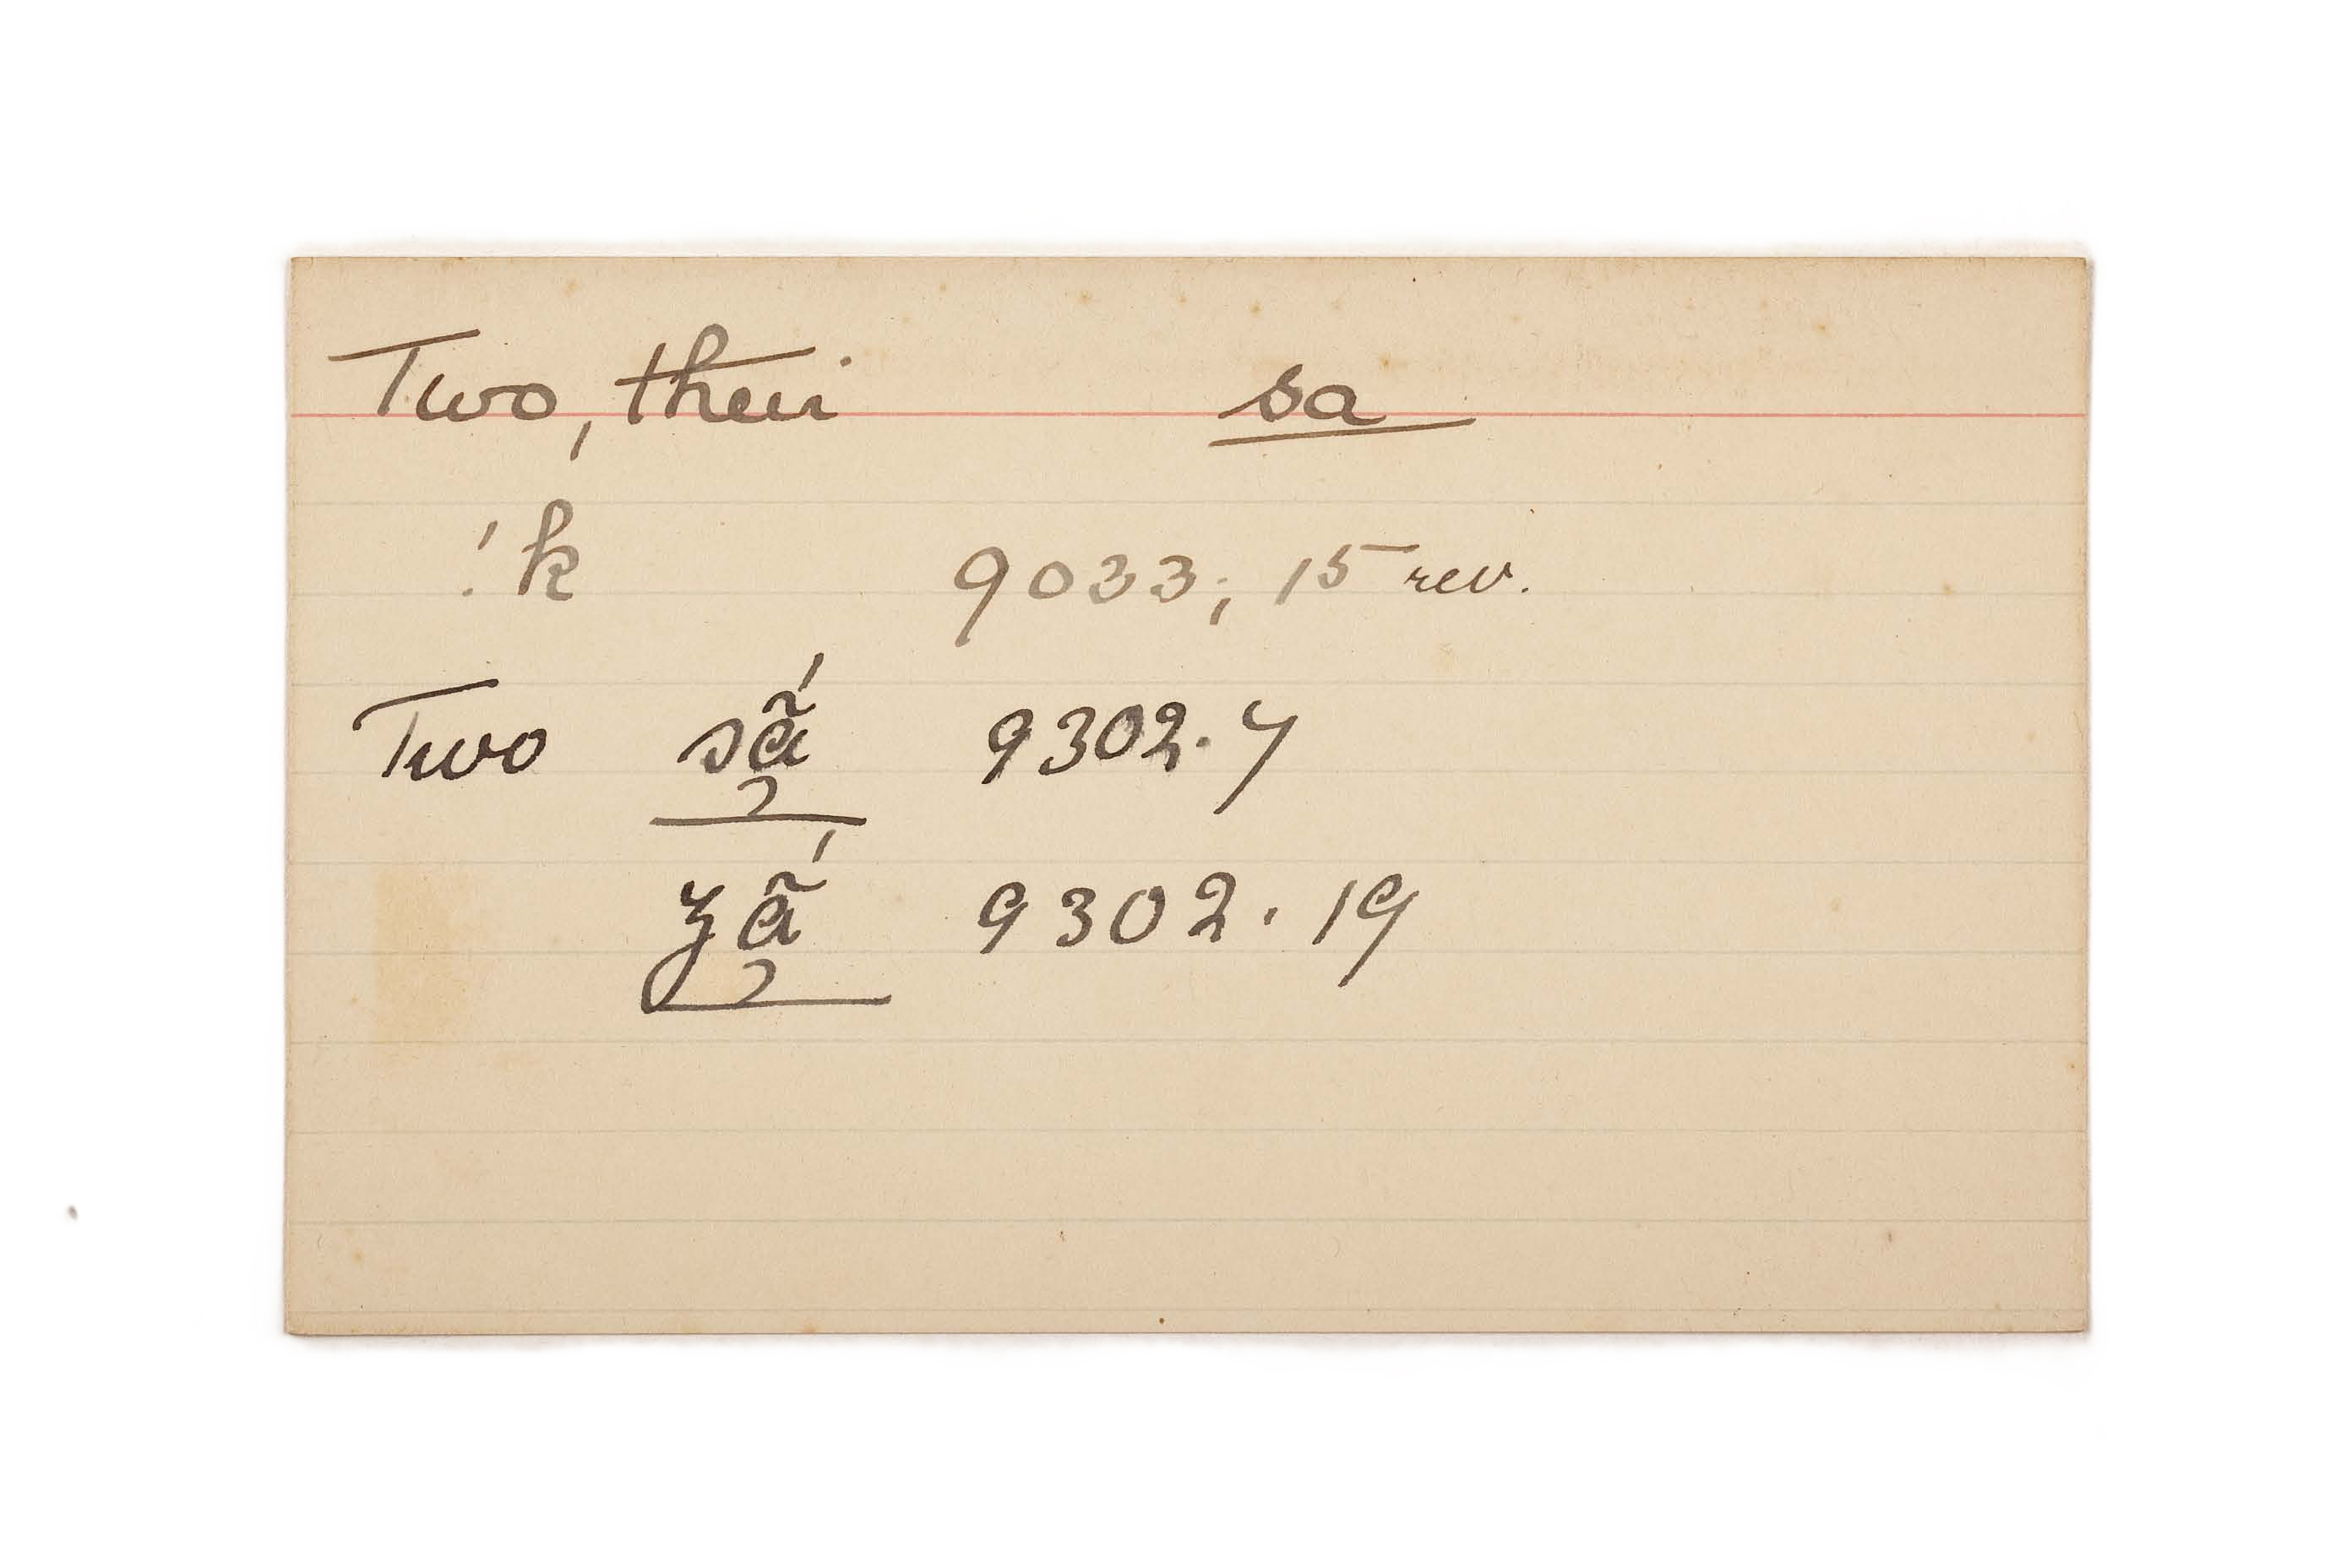 Two, their sa
!k 9033; 15 rev.
Two sã̡́ 9302.7
zã̡́ 9302.19